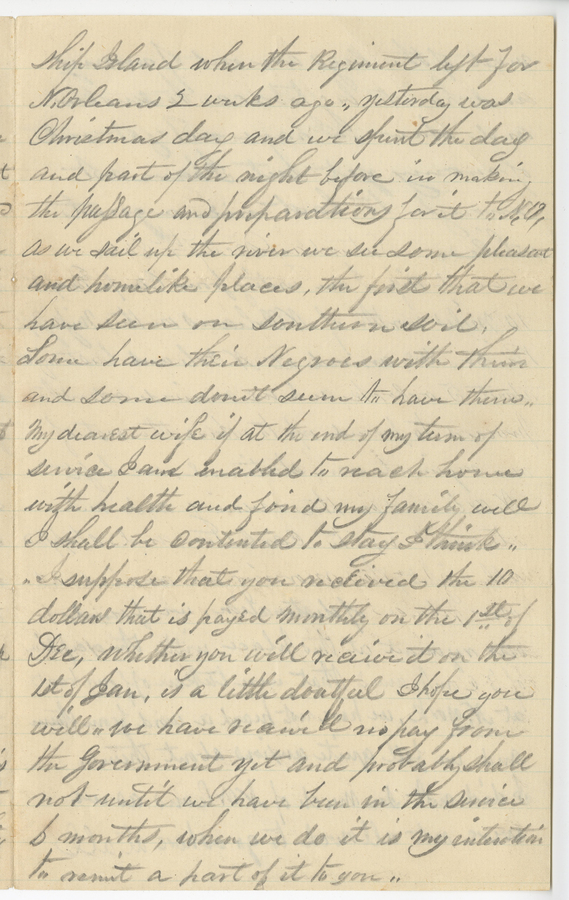 Ship Island when the Regiment left for
N. Orleans 2 weeks ago,, yesterday was
Christmas day and we spent the day
and part of the night before in making
the passage and preparations for it to N.O,
as we sail up the river we see some pleasant
and homelike places, the first that we
have seen on southern soil.
Some have their Negroes with them
and some dont seem to have them,,
My dearest wife if at the end of my term of
service I am enabled to reach home
with health and find my family well
I shall be contented to stay I think,,
,, I suppose that you received the 10
dollars that is payed monthly on the 1st of
Dec, whether you will receive it on the
1st of Jan, is a little doutful I hope you
will,, we have receiv'd no pay from
the Government yet and probably shall
not until we have been in the service
6 months, when we do it is my intention
to remit a part of it to you,,